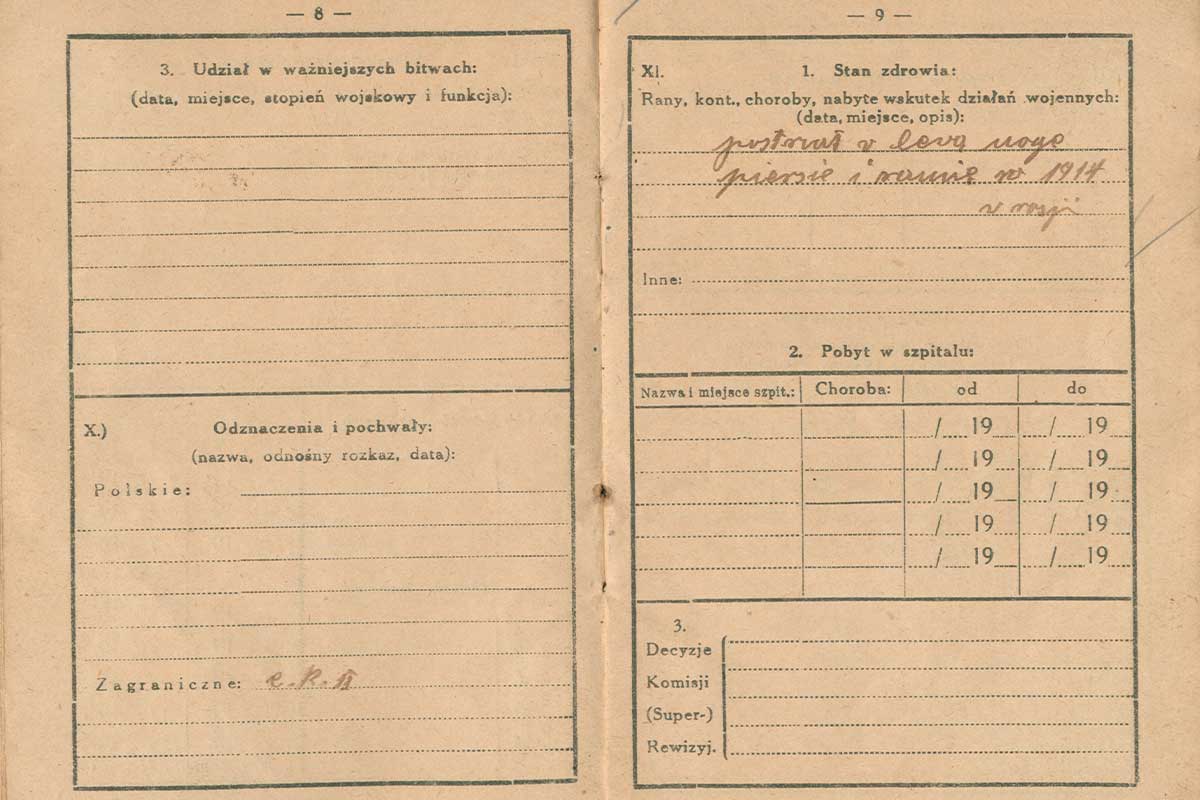 — 8 —
3. Udział w ważniejszych bitwach:
(data, miejsce, stopień wojskowy i funkcja):
X.) Odznaczenia i pochwały:
(nazwa, odnośny rozkaz, data):
Polskie:
Zagraniczne: e. K. II
— 9 —
XI. 1. Stan zdrowia:
Rany, kont., choroby, nabyte wskutek działań wojennych:
(data, miejsce, opis):
postrzał v levą nogę
piersie i ramię w 1914
v rosji
Inne:
2. Pobyt w szpitalu:
Nazwa i miejsce szpit.: Choroba: od do
/ 19 / 19
/ 19 / 19
/ 19 / 19
/ 19 / 19
/ 19 / 19
3.
Decyzje
Komisji
(Super-)
Rewizyj.